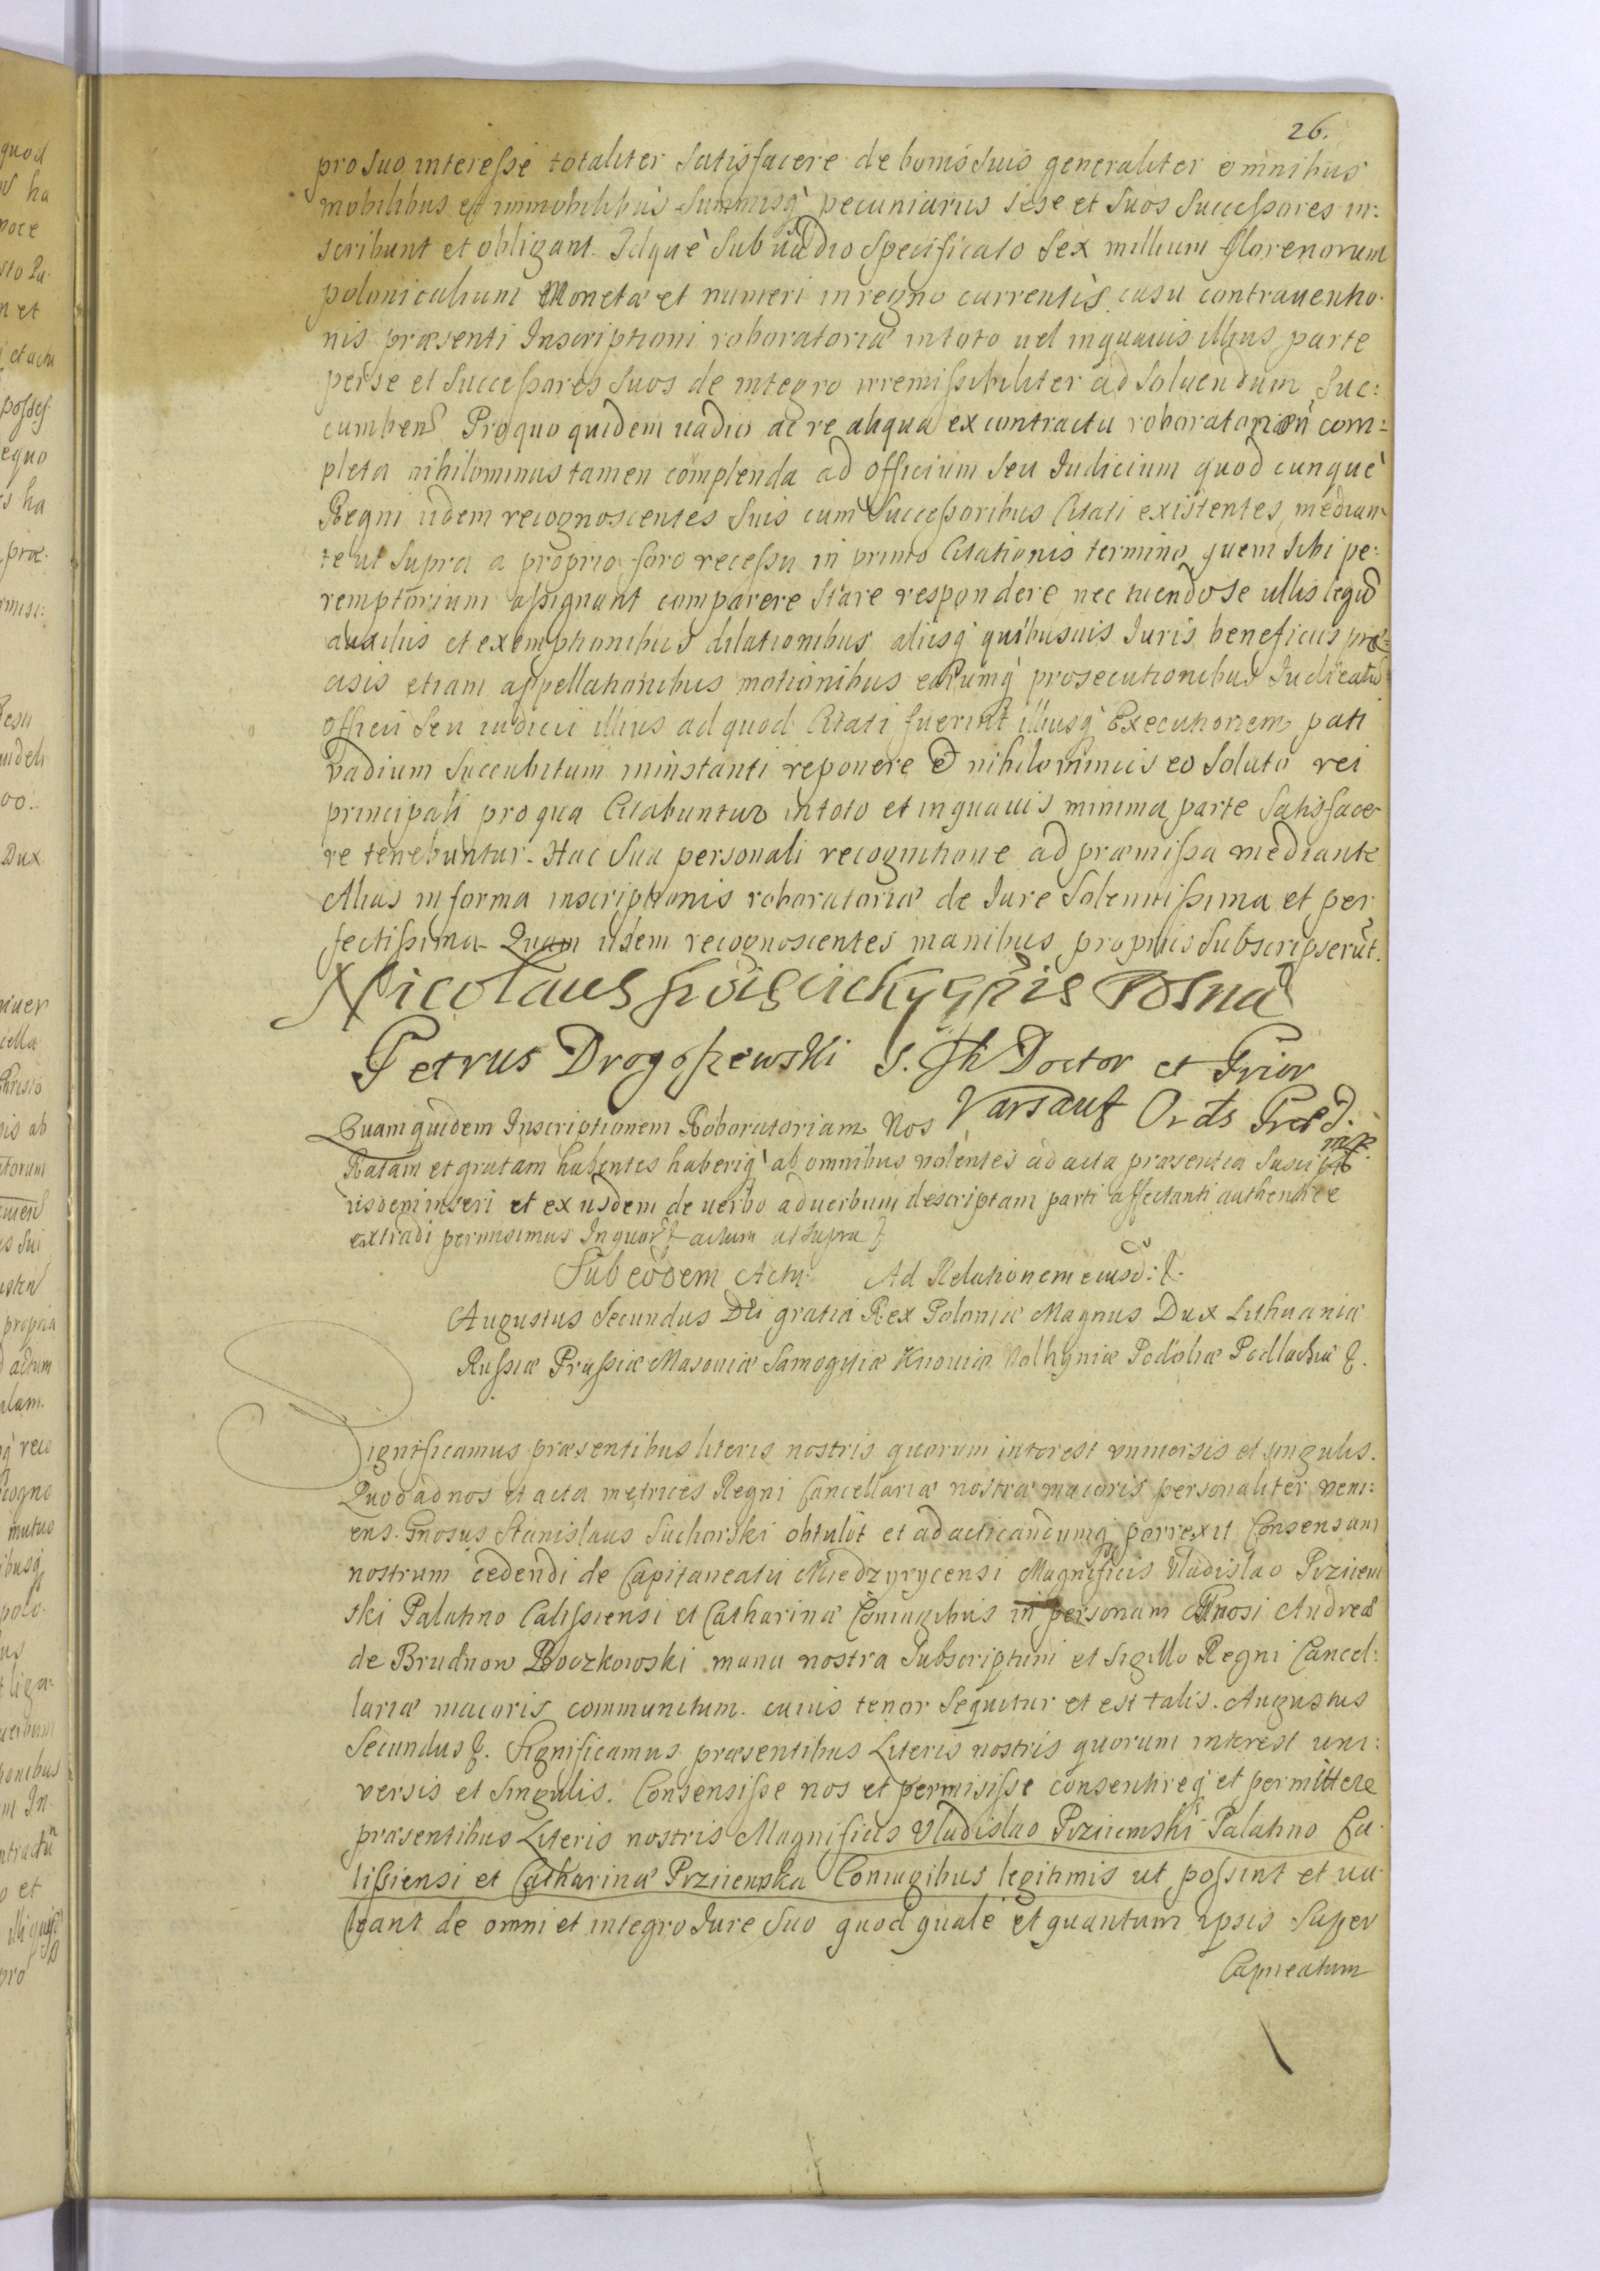 26.
pro suo interesse totaliter satisfacere de bonis suis generaliter omnibus
mobilibus et immobilibus summisq́ pecuniariis sese et suos successores in:
scribunt et obligant. Idque sub uadio specificato sex millium florenorum
polonicalium Monetæ et numeri in regno currentis. casu contrauentio
nis præsenti Inscriptioni roboratoriæ in toto uel in quauis illius parte
per se et successores suos de integro irremissibiliter ad soluendum suc:
cumben̄. Pro quo quidem uadio ac re aliqua ex contractu roboratoriæ com=
pleta nihilominus tamen complenda ad officium seu Iudicium quodcunque
Regni iidem recognoscentes suis cum successoribus Citati existentes, median
te ut supra a proprio foro recessu in primo Citationis termino, quem sibi pe:
remptorium assignant comparere stare respondere nec tuendo se ullis legū
auxiliis et exemptionibus dilationibus aliisq́ quibusuis Iuris beneficiis præ:
cisis etiam appellationibus motionibus earumq́ prosecutionibus Iudicatū
officii seu iudicii illius ad quod Citati fuerint illiusq́ Executionem pati
vadium succubitum in instanti reponere et nihilominus eo soluto rei
principali pro qua Citabuntur in toto et in quauis minima parte satisface
re tenebuntur. Hac sua personali recognitione ad præmissa mediante
Alias in forma inscriptionis roboratoriæ de Iure solemnissima et per
fectissima. Quam iidem recognoscentes manibus propriis subscripserūt.
Nicolaus Posna
Petrus Drogoszewski S. Th Doctor et Prior
Varsauꝫ Ord̄s Præd.
Quamquidem Inscriptionem Roboratoriam Nos
mp
Ratam et gratam habentes haberiq́ ab omnibus volentes ad acta præsentia susci
iisdem inseri et ex iisdem de uerbo ad uerbum descriptam parti affectanti authentice
extradi permisimus In quor̄ actum ut supra
Sub eodem Actu. Ad Relationem eiusd:
Augustus Secundus Dei gratia Rex Poloniæ Magnus Dux Lithuaniæ
Russiæ Prussiæ Masoviæ Samogitiæ Kiiouiæ Volhyniæ Podoliæ Podlachiæ
Significamus præsentibus literis nostris quorum interest vniuersis et singulis.
Quod ad nos et acta metrices Regni Cancellariæ nostræ maioris personaliter veni:
ens. Gnosus Stanislaus Suchorski obtulit et ad acticandumq́ porrexit Consensum
nostrum cedendi de Capitaneatu Miedzyrycensi Magnificis Vladislao Przijem
ski Palatino Calissiensi et Catharinæ Coniugibus in personam Gnosi Andreæ
de Brudnow Boczkowski manu nostra subscriptum et sigillo Regni Cancel:
lariæ maioris communitum. cuius tenor sequitur et est talis. Augustus
Secundus. Significamus præsentibus Literis nostris quorum interest uni:
versis et singulis. Consensisse nos et permisisse consentireq́ et permittere
præsentibus Literis nostris Magnificis Vladislao Przijemski Palatino Ca
lissiensi et Catharinæ Przijemska Coniugibus legitimis ut possint et ua
leant de omni et integro Iure suo quod quale et quantum ipsis super
Capneatum